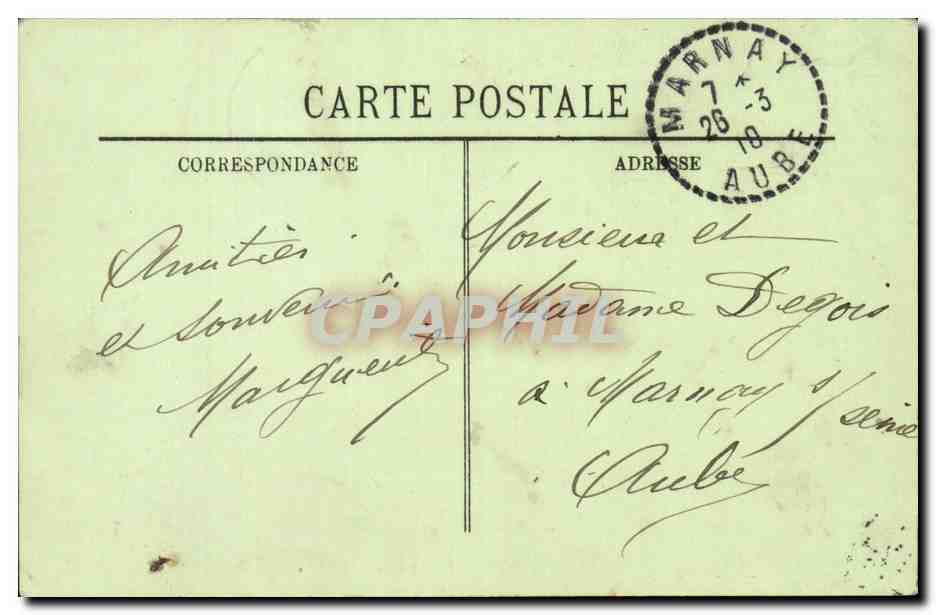 CARTE POSTALE
MARNAY
7 *
26 -3
10
AUBE
CORRESPONDANCE
ADRESSE
Amitiés
et souvenirs
Marguerite
Monsieur et
Madame Degois
à Marnay s/ seine
Aube
CPAPHIL